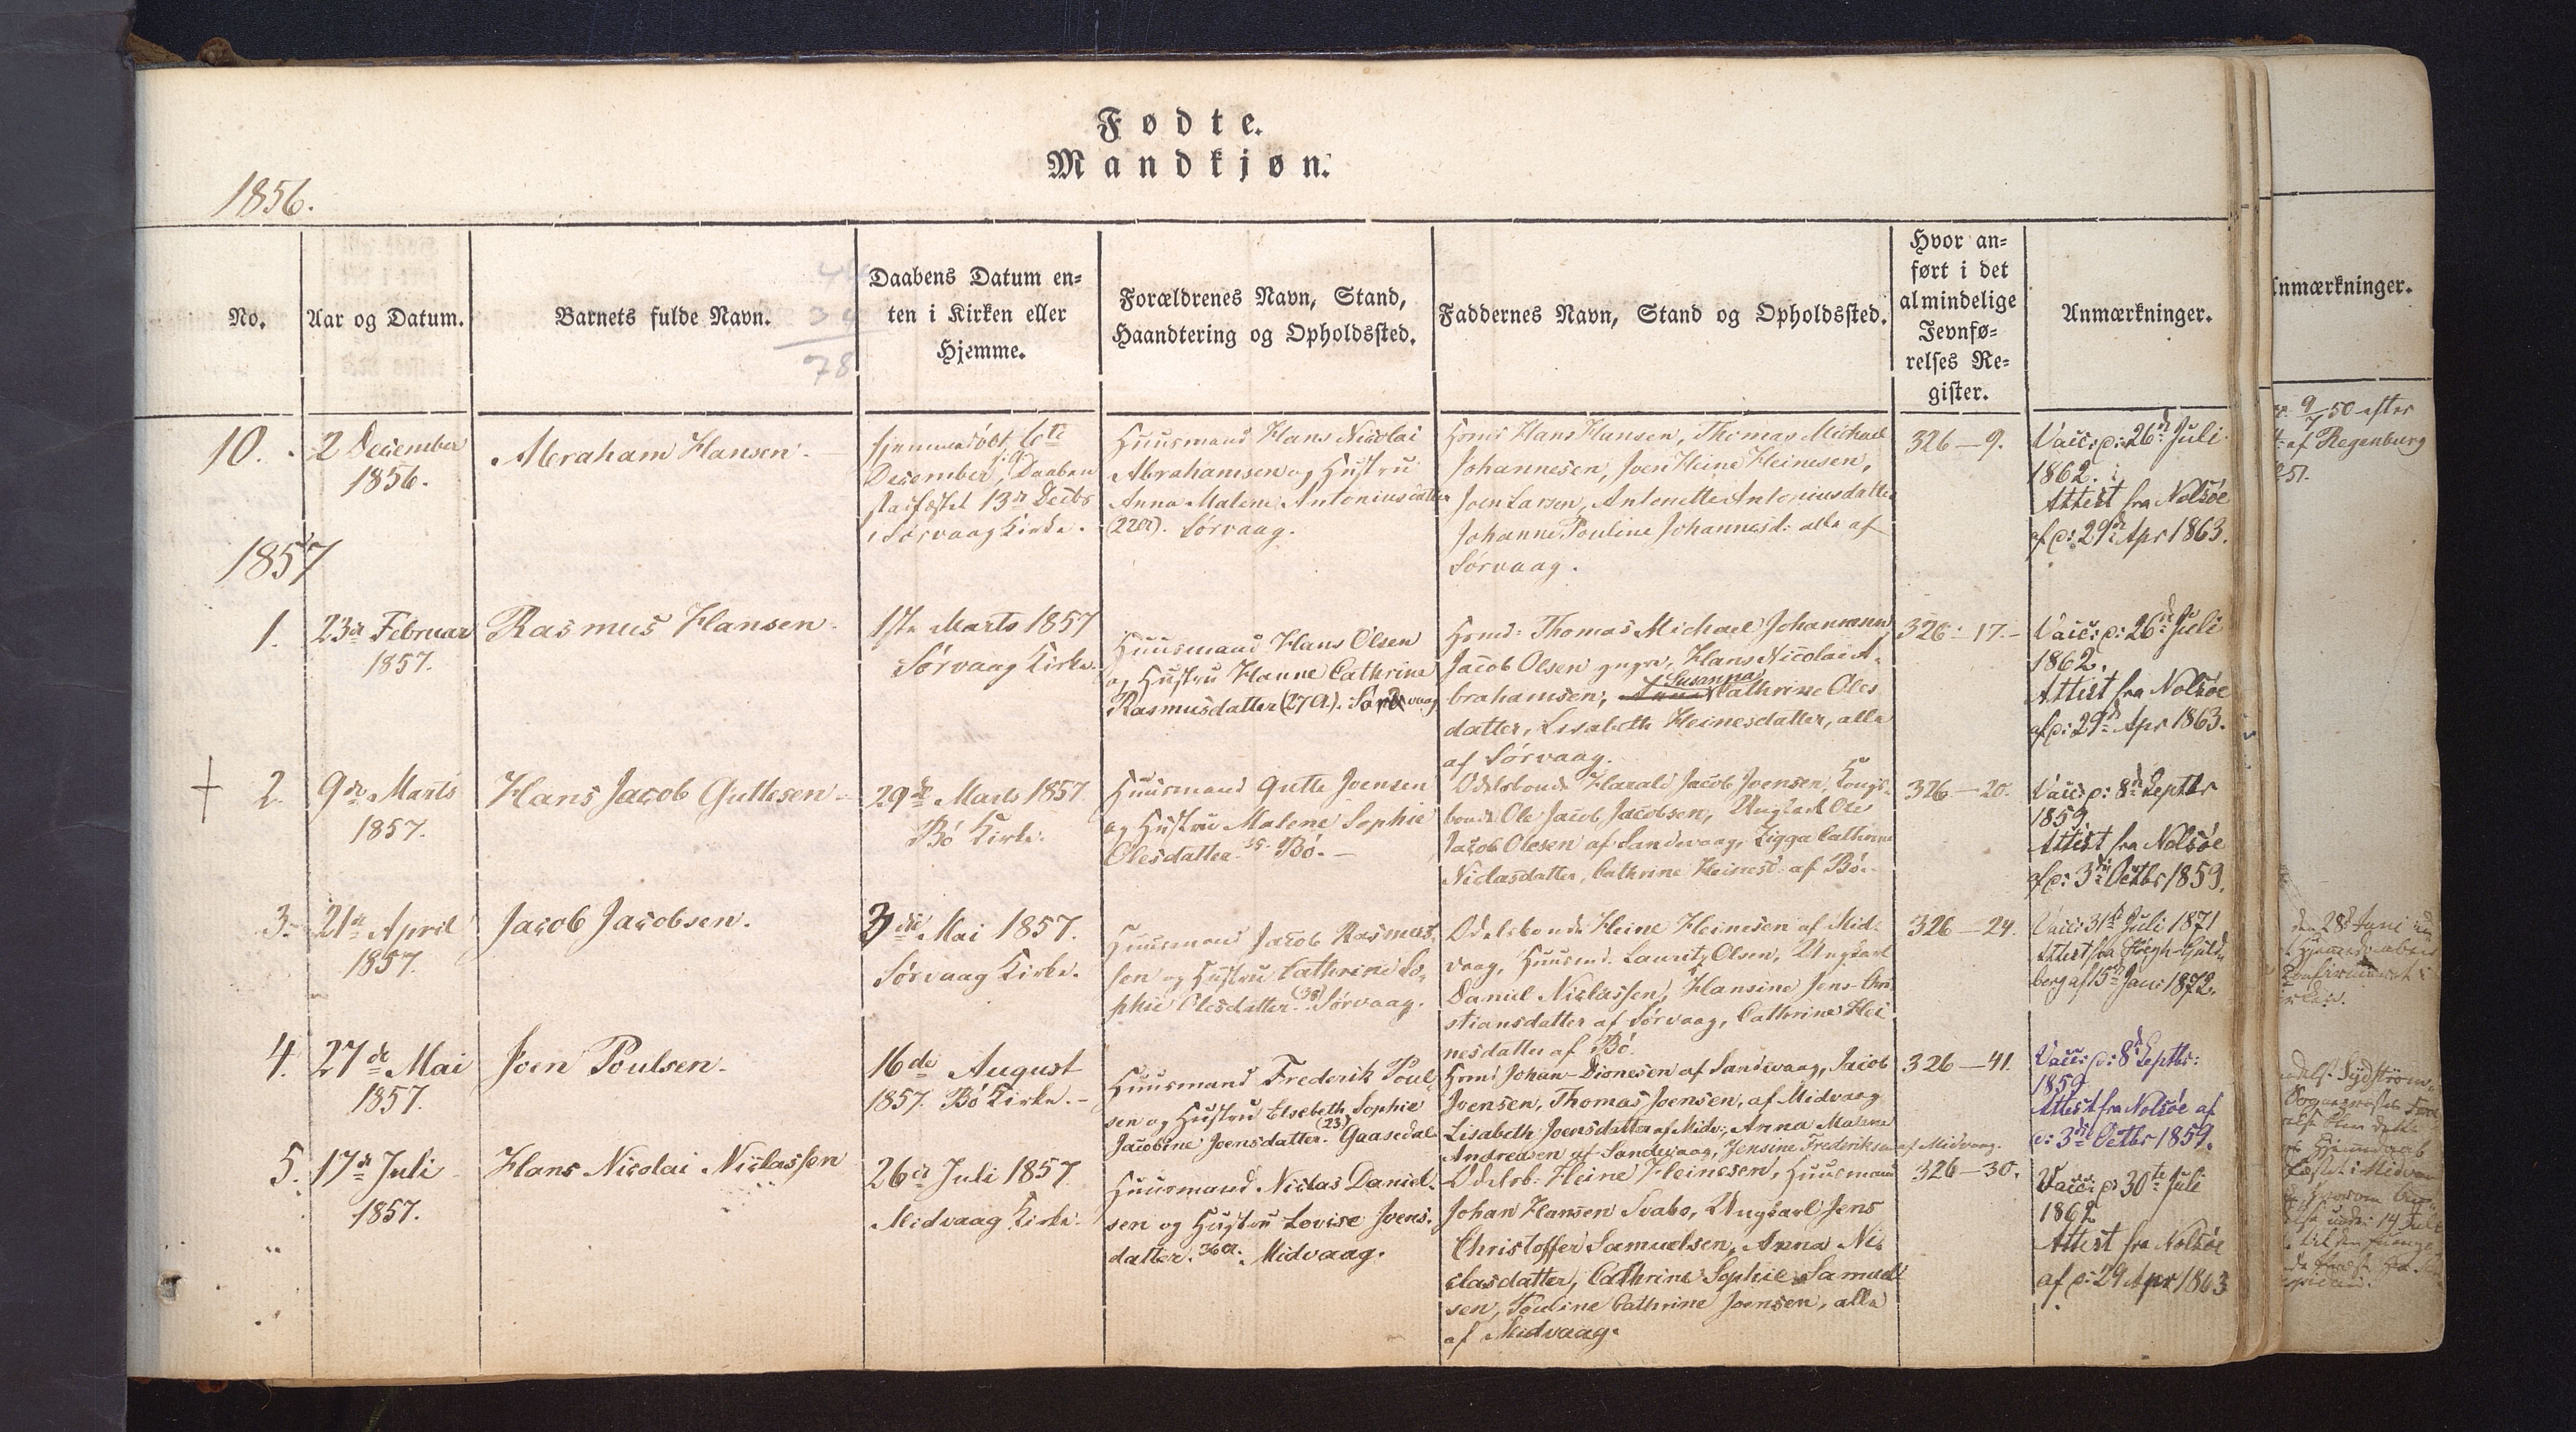 Fødte.
Mandkjøn.
1856.
No.
Aar og Datum.
Barnets fulde Navn.
34
78
Daabens Datum en-
ten i Kirken eller
Hjemme.
Forældrenes Navn, Stand,
Haandtering og Opholdssted.
Faddernes Navn, Stand og Opholdssted.
Hvor an-
ført i det
almindelige
Jevnfø-
relses Re-
gister.
Anmærkninger.
10.
2 December
1856.
Abraham Hansen.
hjemmedøbt 6te
December, Daaben
stadfæstet 13de Decbr
i Sørvaag Kirke.
Huusmand Hans Nicolai
Abrahamsen og Hustru
Anna Malene Antoniusdatter
(22a). Sørvaag.
Hmd Hans Hansen, Thomas Michael
Johannesen, Joen Heine Heinesen,
Joen Larsen, Antonette Antoniusdatter
Johanne Pouline Johannesd: alle af
Sørvaag.
326 — 9.
Vacc: d: 26d Juli
1862.
Attest fra Nolsøe
af d: 29d Apr 1863.
1857
1.
23de Februar
1857.
Rasmus Hansen.
1ste Marts 1857
Sørvaag Kirke.
Huusmand Hans Olsen
og Hustru Hanne Cathrine
Rasmusdatter (27a). Sørvaag
Hmd: Thomas Michael Johannesen,
Jacob Olsen yngre, Hans Nicolai A-
brahamsen, Susanna Cathrine Oles
datter, Lisabeth Heinesdatter, alle
af Sørvaag.
326 — 17.
Vacc: d: 26d Juli
1862.
Attest fra Nolsøe
af d: 29d Apr 1863.
2.
9de Marts
1857.
Hans Jacob Guttesen
29de Marts 1857
Bö Kirke.
Huusmand Gutte Joensen
og Hustru Malene Sophie
Olesdatter 35. Bö. —
Odelsbonde Harald Jacob Joensen, Kongs-
bonde Ole Jacob Jacobsen, Ungkarl Ole
Jacob Olesen af Sandevaag, Zigga Cathrine
Niclasdatter, Cathrine Heinesd: af Bö.
326 — 20.
Vacc: d: 8d Septbr
1859.
Attest fra Nolsøe
af d: 3die Octbr 1859.
3.
21de April
1857.
Jacob Jacobsen.
3die Mai 1857.
Sørvaag Kirke.
Huusmand Jacob Rasmus-
sen og Hustru Cathrine So-
phie Olesdatter (38) Sørvaag.
Odelsbonde Heine Heinesen af Mid-
vaag, Huusmd. Lauritz Olsen, Ungkarl
Daniel Niclassen, Hansine Jens-Chri-
stiansdatter af Sørvaag, Cathrine Hei
nesdatter af Bö.
326 — 24.
Vacc: 31te Juli 1871
Attest fra Høegh-Guld-
berg af 15d Jan: 1872.
4.
27de Mai
1857.
Joen Poulsen.
16de August
1857. Bö Kirke. —
Huusmand Frederik Poul-
sen og Hustru Elsebeth Sophie
Jacobine Joensdatter (23) Gaasedal
Hmd Johan Dionesen af Sandevaag, Jacob
Joensen, Thomas Joensen, af Midvaag
Lisabeth Joensdatter af Midv:, Anna Malene
Andreasen af Sandevaag, Jensine Frederiksen af Midvaag.
326 — 41.
Vacc: d: 8d Septbr:
1859
Attest fra Nolsøe af
d: 3die Octbr 1859.
5.
17de Juli
1857.
Hans Nicolai Niclassen
26de Juli 1857
Midvaag Kirke.
Huusmand Niclas Daniel-
sen og Hustru Lovise Joens-
datter. 36a. Midvaag.
Odelsb: Heine Heinesen, Huusmand
Johan Hansen Svabo, Ungkarl Jens
Christoffer Samuelsen, Anna Ni-
clasdatter, Cathrine Sophie Samuel
sen, Pouline Cathrine Joensen, alle
af Midvaag.
326 — 30.
Vacc: d: 30te Juli
1862
Attest fra Nolsøe
af d: 29 Apr 1863
nmærkninger.
9/7 50 efter
af Regenburg
251.
den 28d Juni
Hjemmedaaben
Confirmeret i
14 Juli